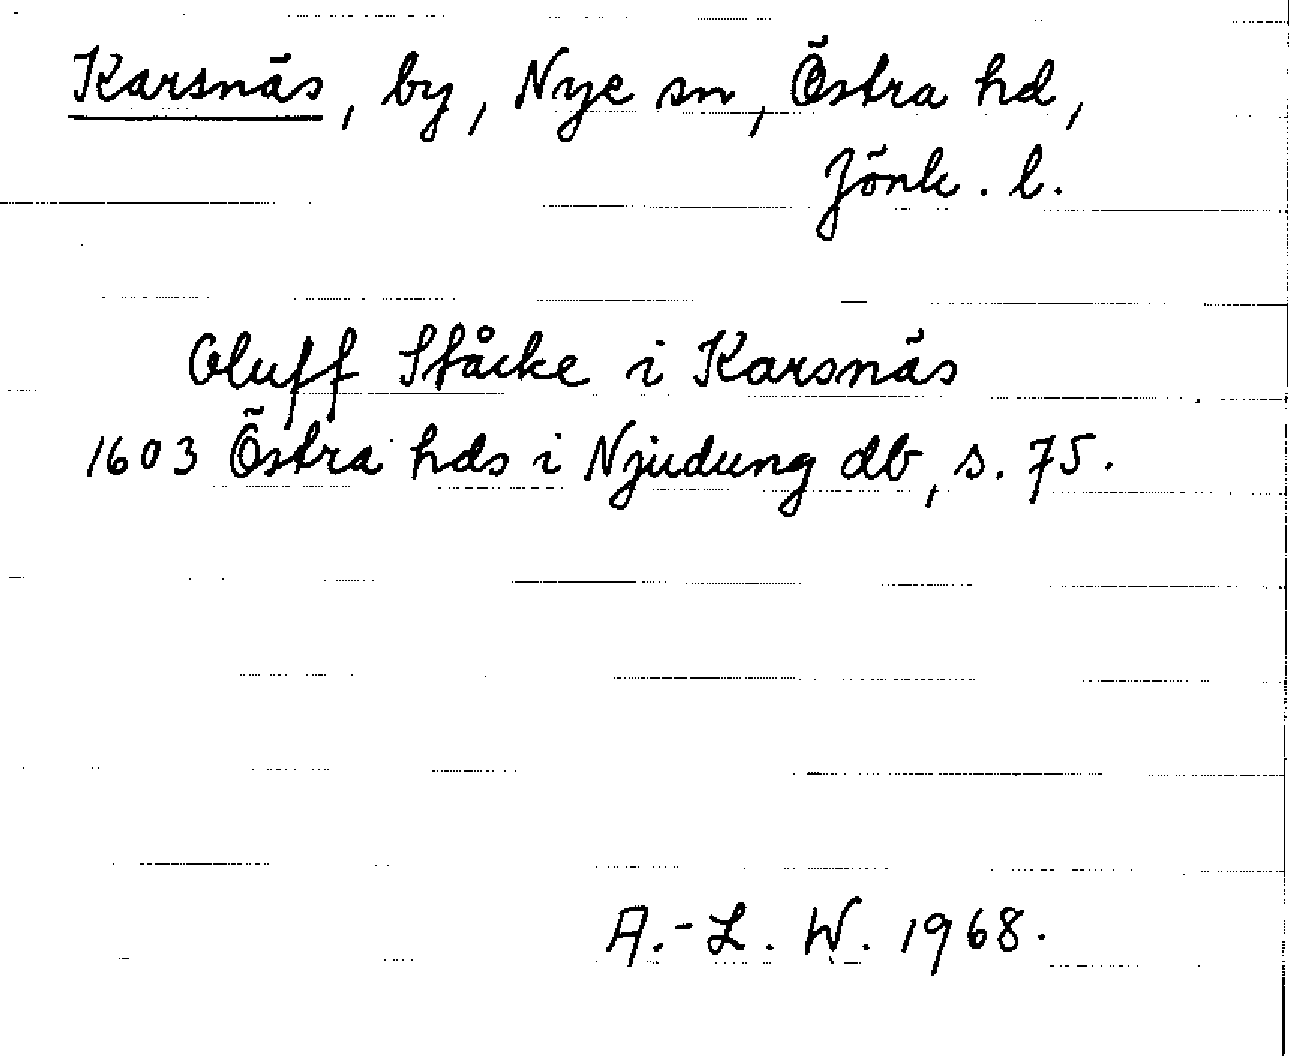 Karsnäs, by, Nye sn, Östra hd,
Jönk. l.
Oluff Ståcke i Karsnäs
1603 Östra hds i Njudung db, s. 75.
A.-L. W. 1968.